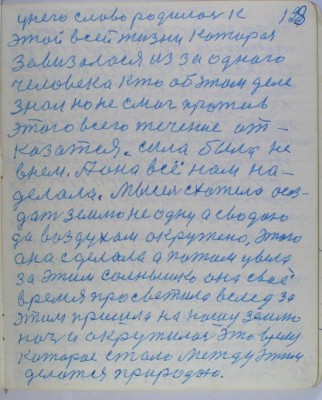 128
у него слово родилося к
этой всей жизни которая
завизалася из за одного
человека кто об этом деле
знал но не смог против
этого всего течение от-
казатся. сила была не
в нем. А она всё нам на-
делала. Мысел схотела осоз-
дат землю не одну а с водою
да воздухам окружено, Этого
она сделала а потом увела
за этим солнышко она своё
время просветила вслед за
этим пришла на нашу землю
ноч и окружилас Это время
которое стало между этим
делатся природою.